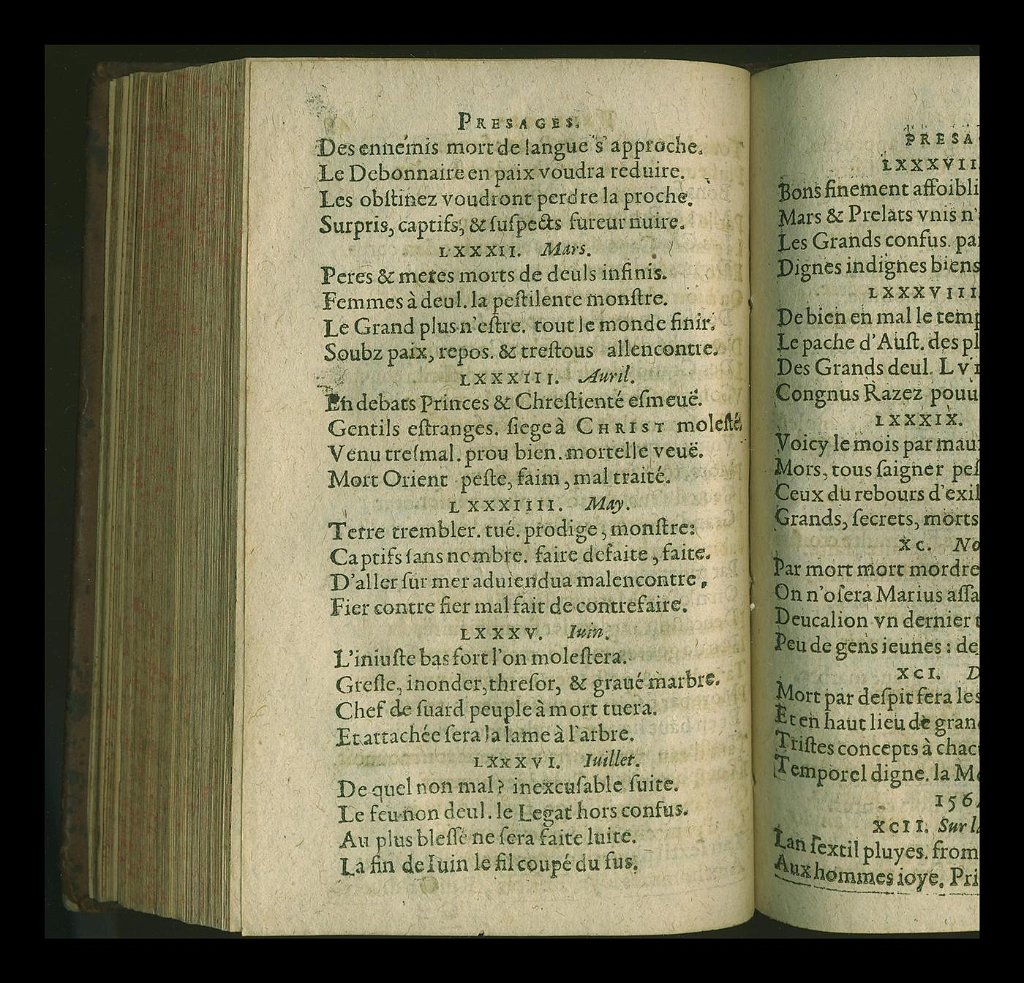 PRESAGES.
Des ennemis mort de langue s'approche.
Le Debonnaire en paix voudra reduire.
Les obſtinez voudront perdre la proche.
Surpris, captifs, & ſuſpects fureur nuire.
LXXXII. Mars.
Peres & meres morts de deuls infinis.
Femmes à deul. la peſtilente monſtre.
Le Grand plus n'eſtre. tout le monde finir.
Soubz paix, repos. & treſtous allencontre.
LXXXIII. Auril.
En debats Princes & Chreſtienté eſmeuë.
Gentils eſtranges. ſiege à CHRIST moleſté.
Venu treſmal. prou bien. mortelle veuë.
Mort Orient peſte, faim, mal traité.
LXXXIIII. May.
Terre trembler. tué. prodige, monſtre:
Captifs ſans nombre. faire defaite, faite.
D'aller ſur mer aduiendua malencontre,
Fier contre fier mal fait de contrefaire.
LXXXV. Iuin.
L'iniuſte bas fort l'on moleſtera.
Greſle, inonder, threſor, & graué marbre.
Chef de ſuard peuple à mort tuera.
Et attachée ſera la lame à l'arbre.
LXXXVI. Iuillet.
De quel non mal? inexcuſable ſuite.
Le feu non deul. le Legat hors confus.
Au plus bleſſé ne ſera faite luite.
La fin de Iuin le fil coupé du fus.
PRESA
LXXXVII
Bons finement affoibli
Mars & Prelats vnis n'
Les Grands confus. pa
Dignes indignes biens
LXXXVIII.
De bien en mal le temp
Le pache d'Auſt. des pl
Des Grands deul. LVI
Congnus Razez pouu
LXXXIX.
Voicy le mois par mau
Mors, tous ſaigner peſ
Ceux du rebours d'exil
Grands, ſecrets, morts
XC. No
Par mort mort mordre
On n'oſera Marius aſſa
Deucalion vn dernier t
Peu de gens ieunes: de
XCI. D
Mort par deſpit fera les
Et en haut lieu de gran
Triſtes concepts à chac
Temporel digne. la M
156
XCII. Sur l
L'an ſextil pluyes. from
Aux hommes ioye. Pri